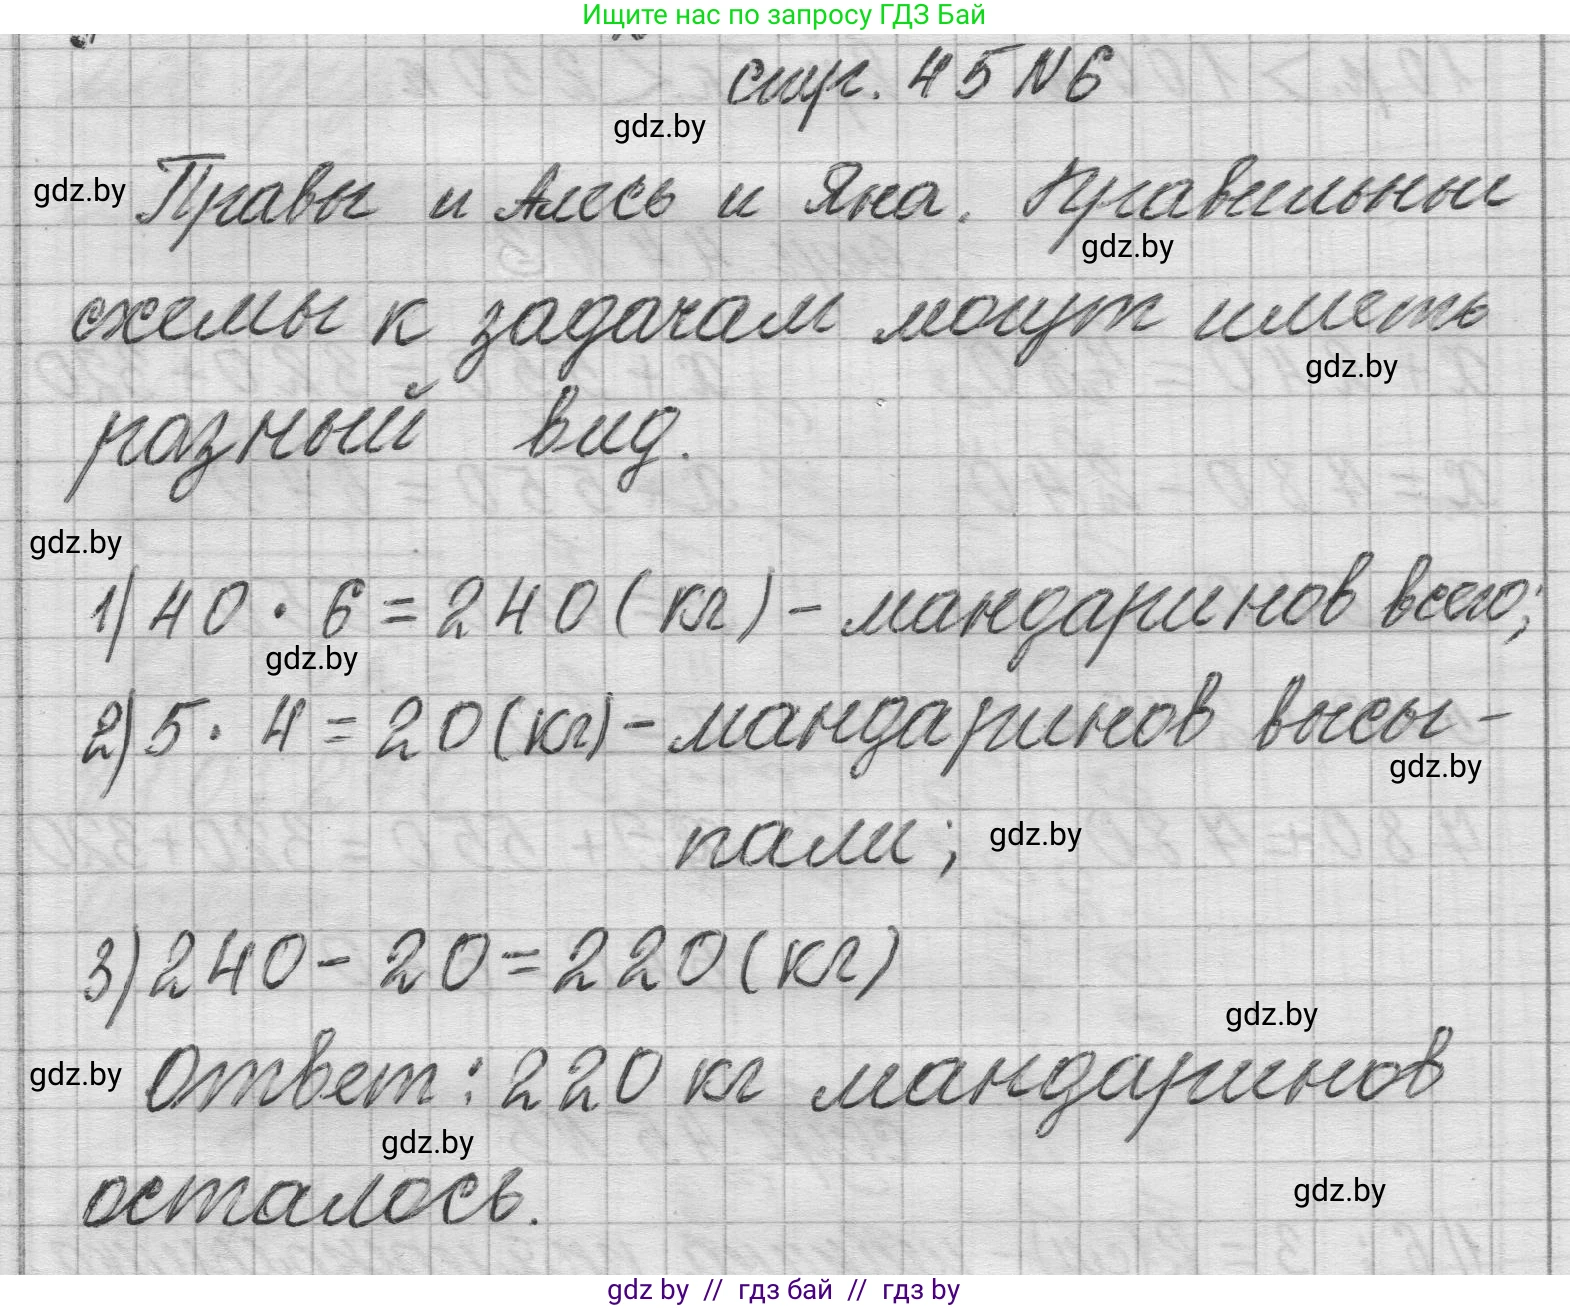 Ищите нас по запросу ГДЗ Бай
стр. 45 N 6
gdz.by
gdz.by
Правы и Алесь и Яна. Правильные
gdz.by
схемы к задачам могут иметь
gdz.by
разный вид.
gdz.by
1) 40 · 6 = 240 (кг) - мандаринов всего;
gdz.by
2) 5 · 4 = 20 (кг) - мандаринов высы-
gdz.by
пали;
gdz.by
3) 240 - 20 = 220 (кг)
gdz.by
gdz.by
Ответ: 220 кг мандаринов
gdz.by
осталось.
gdz.by
gdz by // гдз бай // гдз by